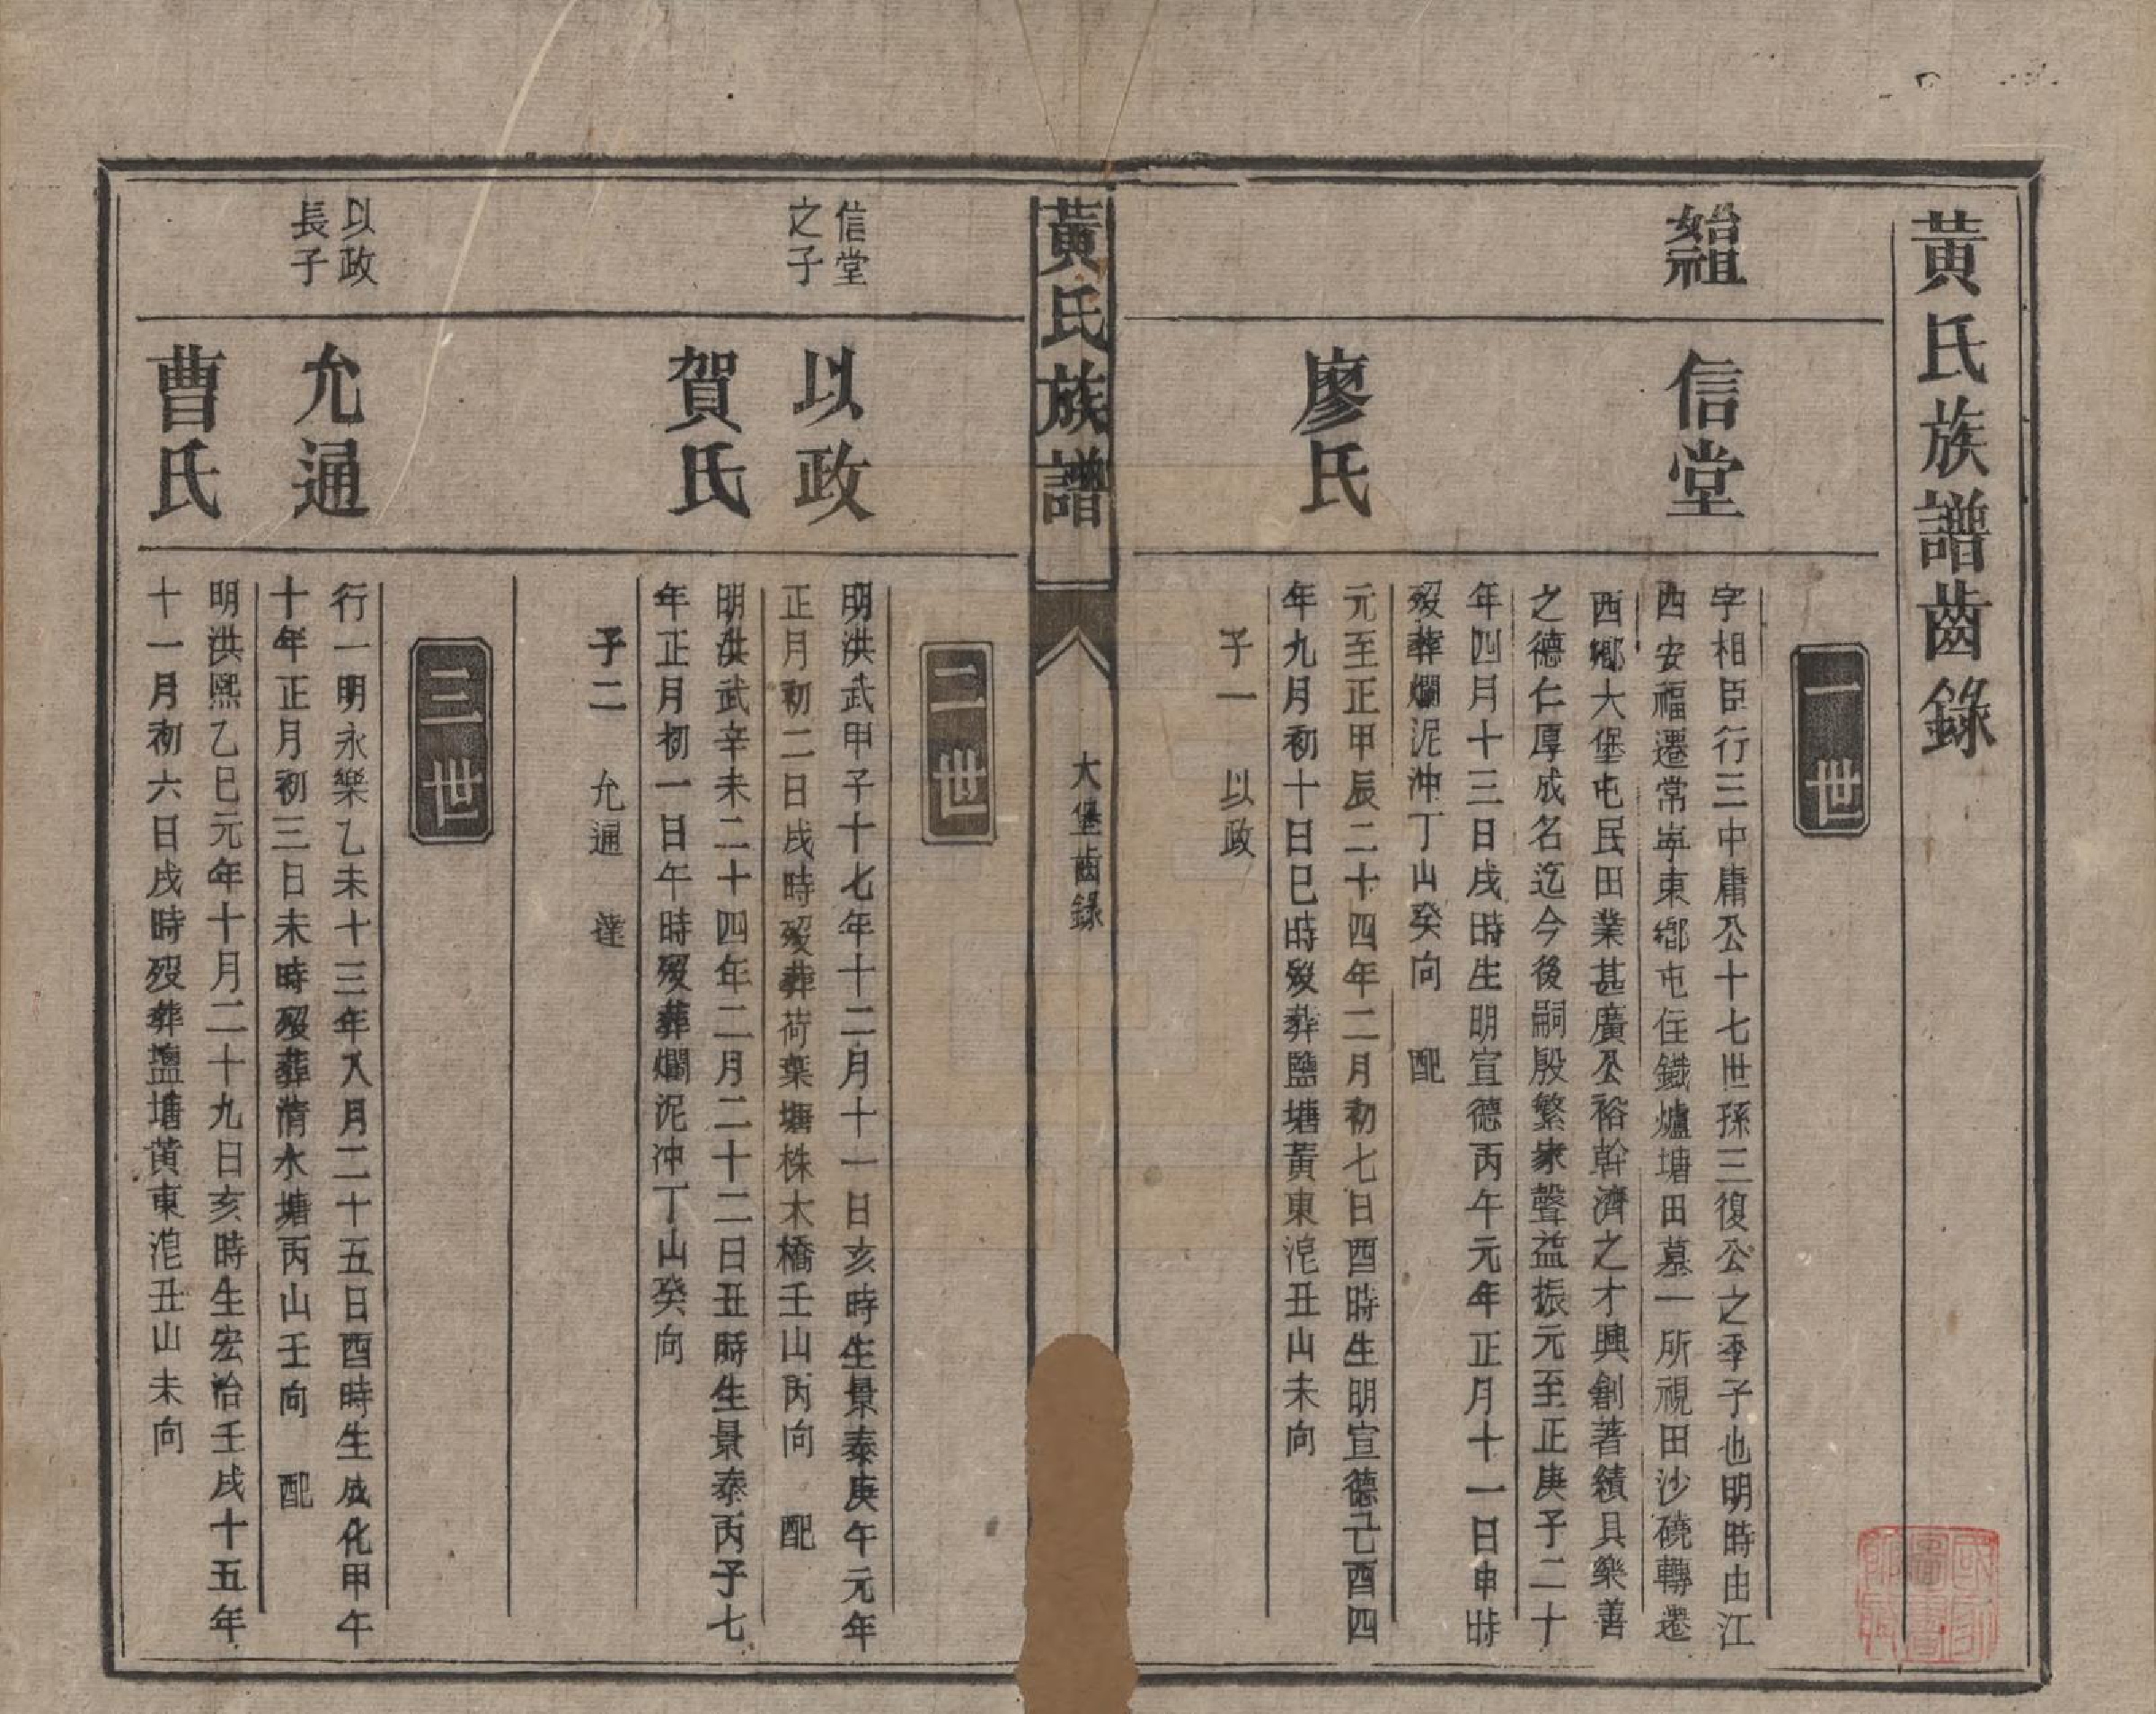 黃氏族譜齒錄
一世
始祖
信堂
字相臣行三中庸公十七世孫三復公之季子也明時由江
西安福遷常寧東鄉屯住鐵爐塘田墓一所視田沙磽轉遷
西鄉大堡屯民田業甚廣公裕幹濟之才興創著績具樂善
之德仁厚成名迄今後嗣殷繁家聲益振元至正庚子二十
年四月十三日戌時生明宣德丙午元年正月十一日申時
歿葬爛泥沖丁山癸向 配
廖氏
元至正甲辰二十四年二月初七日酉時生明宣德己酉四
年九月初十日巳時歿葬鹽塘黃東漥丑山未向
子一 以政
黃氏族譜
大堡齒錄
二世
信堂
之子
以政
明洪武甲子十七年十二月十一日亥時生景泰庚午元年
正月初二日戌時歿葬荷葉塘株木橋壬山丙向 配
賀氏
明洪武辛未二十四年二月二十二日丑時生景泰丙子七
年正月初一日午時歿葬爛泥沖丁山癸向
子二 允通 達
三世
以政
長子
允通
行一明永樂乙未十三年八月二十五日酉時生成化甲午
十年正月初三日未時歿葬清水塘丙山壬向 配
曹氏
明洪熙乙巳元年十月二十九日亥時生宏治壬戌十五年
十一月初六日戌時歿葬塩塘黃東漥丑山未向